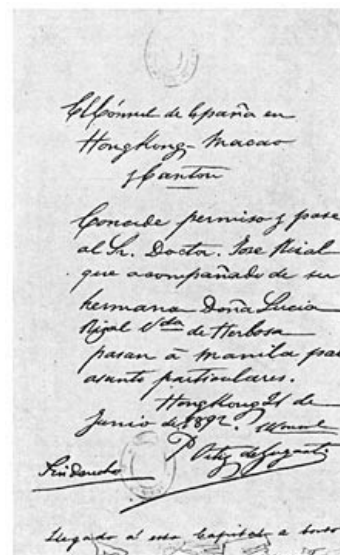 El Cónsul de España en
HongKong- Macao
y Canton
Concede permiso y pase
al Sr. Doctor. Jose Rizal
que acompañado de su
hermana Doña Lucia
Rizal Vda de Herbosa
pasan á Manila para
asunto particulares.
HongKong 21 de
Junio de 1892.
P. Ortiz de
Sin derecho
Llegado al esta Capital a bordo